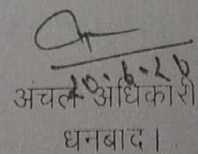 20.6.20
अंचल अधिकारी
धनबाद।